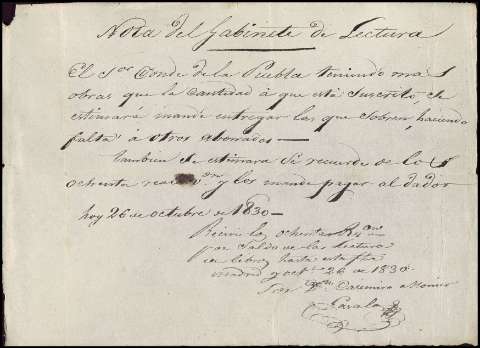 Nota del Gabinete de Lectura
El S.or Conde de la Puebla teniendo mas
obras que la Cantidad à que está Suscrito, se
estimará mande entregar las que Sobren, haciendo
falta à otros abonados—
tambien se estimara se recuerde de los
ochenta reales vn y los mande pagar al dador
hoy 26 de octubre de 1830—
Recivi los ochenta R.s vn
por Saldo de las lectura
de libros hasta esta fha
Madrid y oct.e 26 de 1830
Casimiro Monier